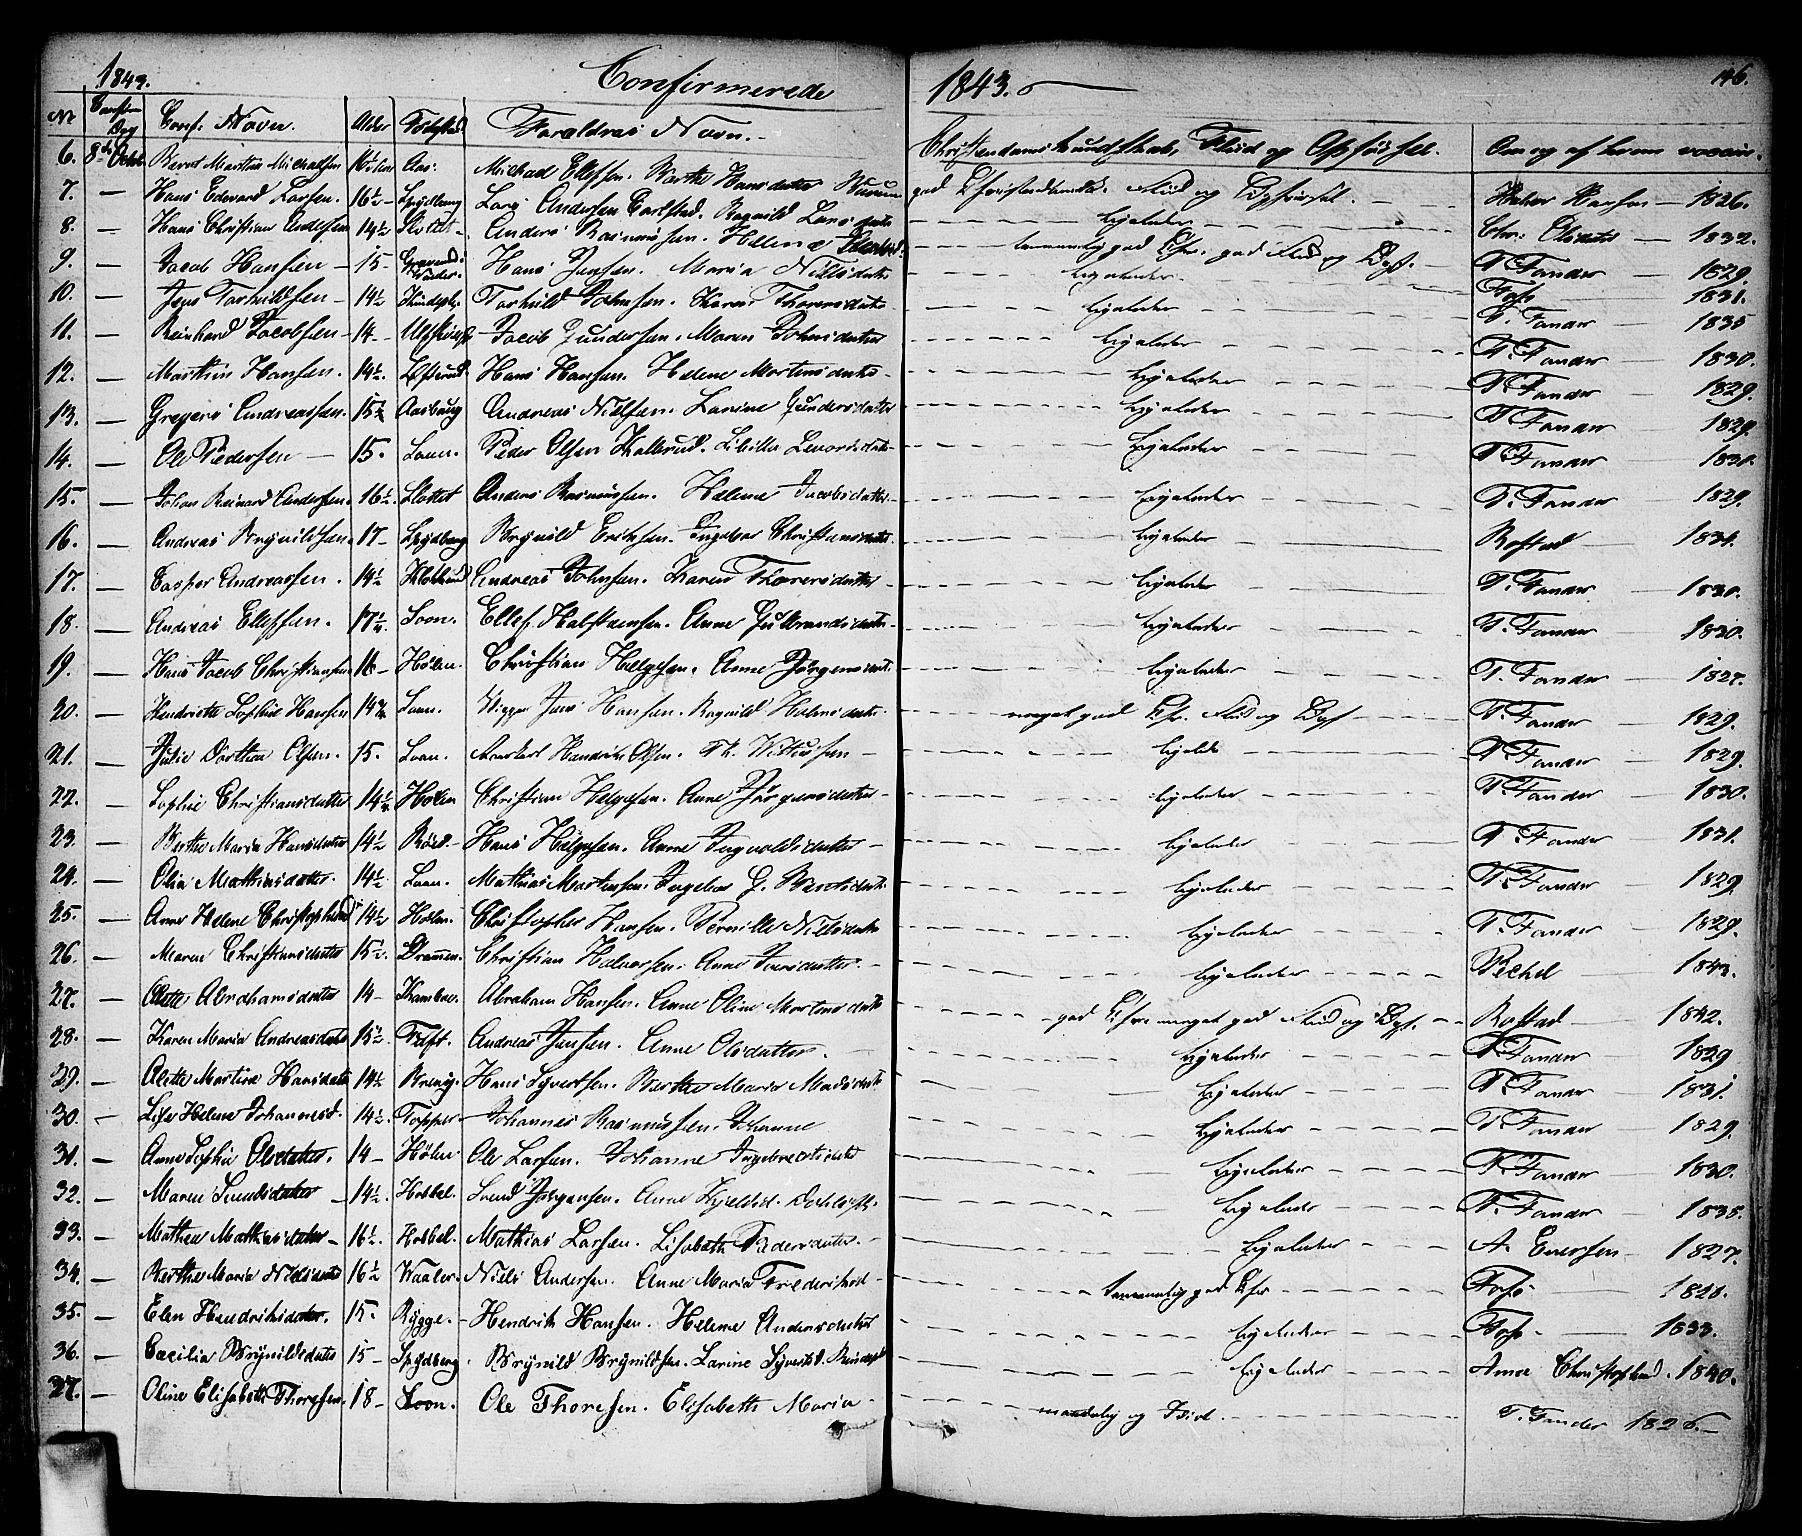 1843. Confirmerede 1843. 146.
Nr Conf: Navn. Alder Fødested Forældres Navn. Christendoms Kundskab, Fliid og Opførsel. Om og af hvem vaccin.
6. 8de Octob. Bernt Martin Michaelsen 16 Aas. Michael Ellefsen. Berthe Hansdatter god Christendomsk. Fliid og Opførsel. 1826.
7. — Hans Edevard Larsen. 16½ Spydberg Lars Andersen Carlstad. Ragnild Larsdatter ligeledes Chr: Olsdatter — 1832.
8. — Hans Christian Andersen 14½ Slottet Anders Rasmussen. Helene temmelig god Chr. god Fliid og Opf. T. Fander 1829.
9. — Jacob Hansen — 15 Hans Jensen. Maria Nielsdatter ligeledes Foss 1831.
10. — Jens Torkildsen — 14½ Torkild Johnsen. Karen Thoresdatter ligeledes T. Fander 1835
11. — Reinhard Jacobsen — 14 Jacob Gundersen. Maren Johnsdatter ligeledes T. Fander — 1830.
12. — Martin Hansen. 14½ Hans Hansen. Helene Mortensdatter ligeledes T. Fander — 1829.
13. — Gregers Andreassen. 15½ Andreas Nielsen. Larine Gundersdatter ligeledes T. Fander 1829.
14. — Ole Pedersen — 15. Soon. Peder Olsen ligeledes T. Fander
15. — Johan Reinard Andersen 16½ Slottet Anders Rasmussen. Helene Jacobsdatter ligeledes T. Fander 1829.
16. — Andreas Brynildsen 17 Spydberg Brynild Erichsen. Ingebor Christensdatter ligeledes Rostad 1834.
17. — Casper Andreassen. 14½ Andreas Johnsen. Karen Thoresdatter ligeledes T. Fander 1830.
18. — Andreas Ellefsen. 17¼ Soon. Ellef Halstensen. Anne Gulbrandsdatter ligeledes T. Fander 1830.
19. — Hans Jacob Christiansen Hølen. Christian Helgesen. Anne Jørgensdat. ligeledes T. Fander 1827.
20. — Hendrikke Sophie Hansen 14¾ Soon. Wigger Jens Hansen. Ragnild Holmsdatter noget god Chr. Fliid og Opf T. Fander 1829.
21. — Julie Dorthea Olsen. 15. Soon. Hendrik Olsen. ligeledes T. Fander 1829.
22. — Sophie Christiansdatter 14¼ Hølen Christian Helgesen. Anne Jørgensdatter ligeledes T. Fander 1830.
23. — Berthe Maria Hansdatter 14½ Hans Helgesen. Anne Ingvoldsdatter ligeledes T. Fander 1831.
24. — Olia Mathiasdatter. 14½ Soon. Mathias Mortensen. Ingebor G. Berntsdat. ligeledes T. Fander 1829
25. — Anne Helene Christophersd. 14½ Hølen. Christopher Hansen. Pernille Nielsdatter ligeledes T. Fander 1829.
26. — Maren Christiansdatter 15½ Drammen. Christian Halvorsen. Anne Iversdatter. ligeledes Pechel 1843.
27. — Olette Abrahamsdatter 14 Kamboe. Abraham Hansen. Anne Oline Mortensdat. god Chr. noget god Fliid og Opf. Rostad 1842.
28. — Karen Maria Andreasdatter 15½ Toft. Andreas Jensen. Anne Olsdatter. ligeledes T. Fander 1829
29. — Olette Martine Hansdatter 14½ Hans Syvertsen. Berthe Maria ligeledes T. Fander 1831.
30. — Lise Helene Johannesd. 14½ Topper Johannes Rasmussen. Johanne ligeledes T. Fander 1829.
31. — Anne Sophie Olsdatter. 14 Hølen Ole Larsen. Johanne Ingebretsdatter ligeledes T. Fander 1830.
32. — Maren Svendsdatter 14½ Hobbel. Svend Jørgensen. Anne Kjeldsd. ligeledes T. Fander — 1835.
33. — Mathea Mathiasdatter 16½ Hobbel. Mathias Larsen. Lisabeth Pedersdatter ligeledes A. Evensen 1827.
34. — Berthe Maria Nielsdatter 16½ Vaaler. Niels Andersen. Anne Maria temmelig god Chr Foss 1828.
35. — Elen Hendriksdatter. 15. Rygge. Hendrik Hansen. Helene Andersdatter ligeledes Foss 1833.
36. — Cæcilia Brynildsdatter 15 Spydberg. Brynild Brynildsen. Larine Syvertsd. ligeledes Anne Christophersd. 1840.
37. — Oline Elisabeth Thoresen. 18 Soon. Ole Thoresen. Elisabeth Maria og Fliid. T. Fander 1826.